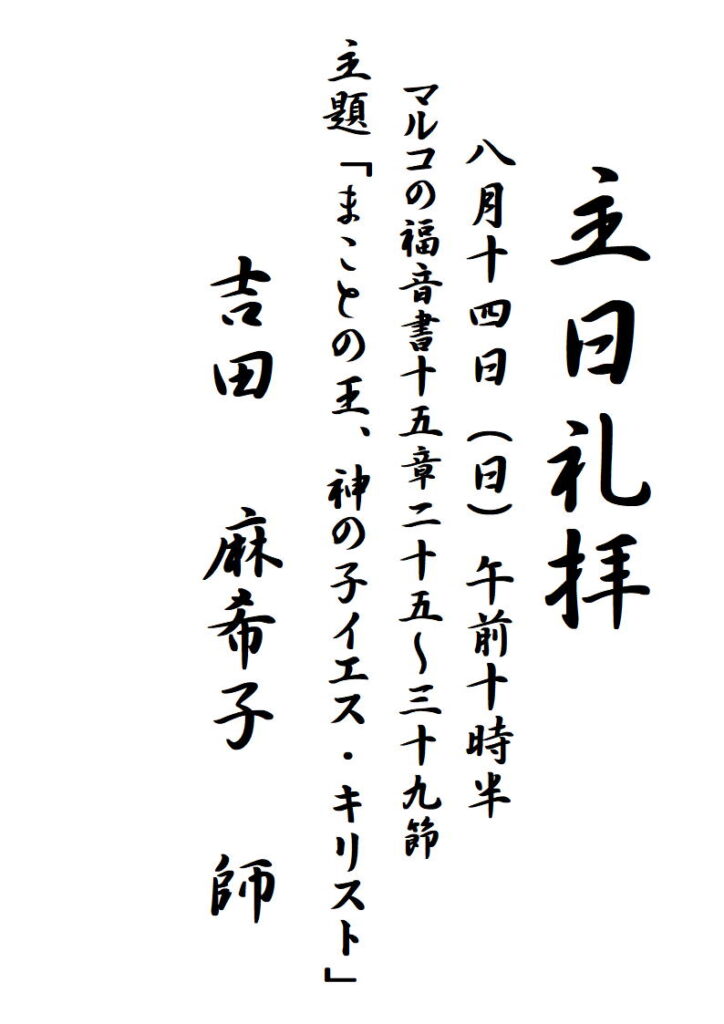 主日礼拝
八月十四日（日）午前十時半
マルコの福音書十五章二十五～三十九節
主題「まことの王、神の子イエス・キリスト」
吉田　麻希子　師